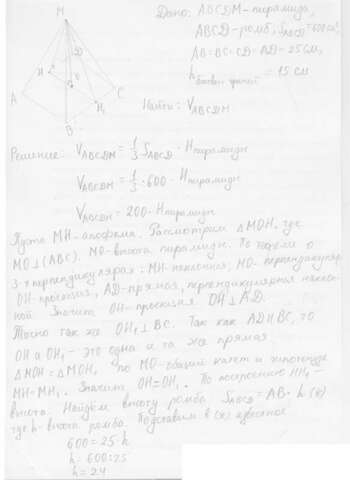 Дано: ABCDM - пирамида,
ABCD - ромб, S_ABCD = 600см²,
AB=BC=CD=AD=25см,
h боковых граней = 15 см
Найти: V_ABCDM
M
D
H
O
A
C
H₁
B
Решение: V_ABCDM = 1/3 S_ABCD · H пирамиды
V_ABCDM = 1/3 · 600 · H пирамиды
V_ABCDM = 200 · H пирамиды
Пусть MH - апофема. Рассмотрим △MOH, где
MO⊥(ABC). MO - высота пирамиды. По теореме о
3-х перпендикулярах: MH - наклонная, MO - перпендикуляр
OH - проекция, AD - прямая, перпендикулярная наклон-
ной. Значит OH - проекция OH⊥AD.
Точно так же OH₁⊥BC. Так как AD∥BC, то
OH и OH₁ - это одна и та же прямая
△MOH = △MOH₁ по MO - общий катет и гипотенузе
MH=MH₁. Значит OH=OH₁. По построению HH₁ -
высота. Найдём высоту ромба: S_ABCD = AB · h (*)
где h - высота ромба. Подставим в (*) известное
600 = 25 · h
h = 600:25
h = 24